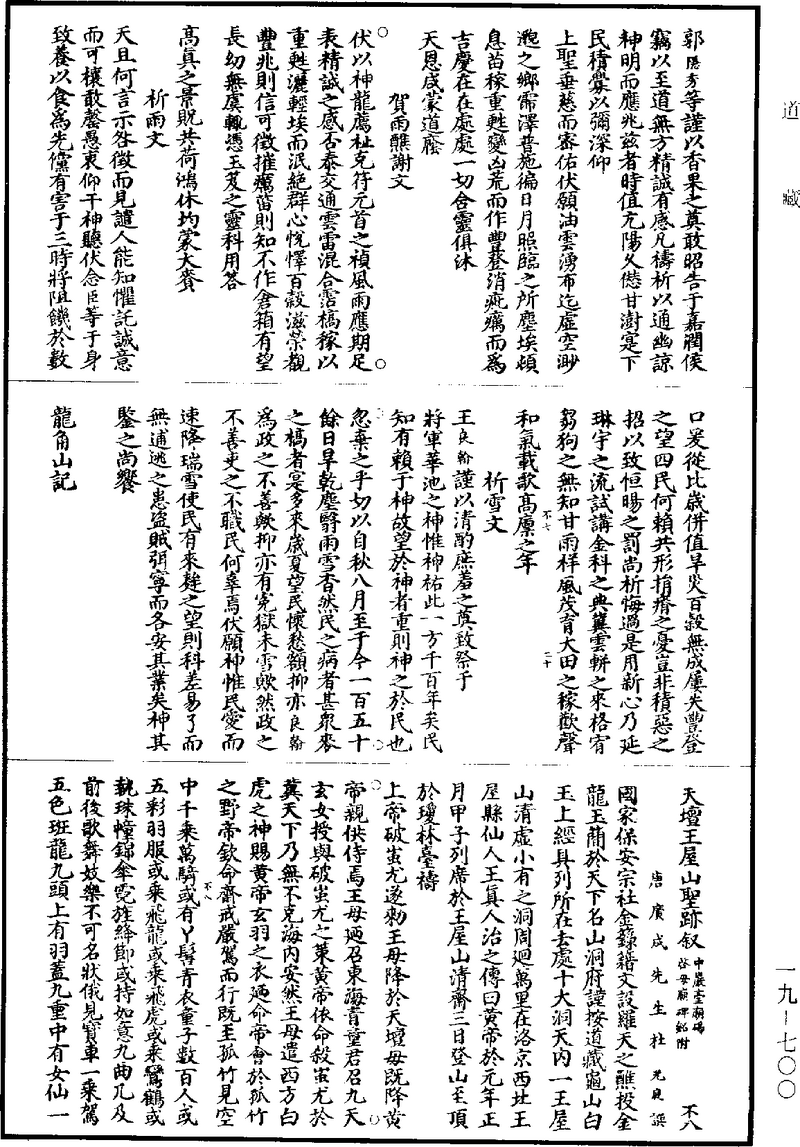 道藏
一九-七〇〇
郭思彥等謹以香果之奠敢昭告于嘉潤侯
竊以至道無方精誠有感凡禱祈以通幽諒
神明而應兆兹者時值亢陽久愆甘澍寔下
民積釁以彌深仰
上聖垂慈而審佑伏願油雲湧布迄虛空渺
邈之鄉霈澤普施徧日月照臨之所塵埃頓
息苗稼重甦變凶荒而作豐登消疵癘而爲
吉慶在在處處一切含靈俱沐
天恩咸蒙道廕
賀雨醮謝文
伏以神龍薦祉克符元首之禎風雨應期足
表精誠之感否泰交通雲雷混合霑槁稼以
重甦灑輕埃而泯絕群心悅懌百穀滋榮觀
豐兆則信可徵摧癘菑則知不作倉箱有望
長幼無虞輒憑玉笈之靈科用答
高真之景貺共荷鴻休均蒙大賚
祈雨文
天且何言示咎徵而見譴人能知懼託誠意
而可禳敢罄愚衷仰干神聽伏念臣等于身
致養以食爲先儻有害于三時將阻饑於數
口爰從比歲併值旱災百穀無成屢失豐登
之望四民何賴共形捐瘠之憂豈非積惡之
招以致恒暘之罰尚祈悔過是用新心乃延
琳宇之流試講金科之典冀雲軿之來格宥
芻狗之無知甘雨祥風茂育大田之稼歡聲
和氣載歌高廩之年
不七
二十
祈雪文
王良翰謹以清酌庶羞之奠致祭于
將軍華池之神惟神祐此一方千百年矣民
知有賴于神故望於神者重則神之於民也
忽棄之乎切以自秋八月至于今一百五十
餘日旱乾塵翳雨雪杳然民之病者甚衆麥
之槁者寔多來歲夏望民懷愁額抑亦良翰
爲政之不善歟抑亦有冤獄未雪歟然政之
不善吏之不職民何辜焉伏願神惟民愛而
速降瑞雪使民有來麰之望則科差易了而
無逋逃之患盜賊弭寧而各安其業矣神其
鑒之尚饗
龍角山記
天壇王屋山聖跡叙
中巖臺廟碣
啓母廟碑銘附
不八
唐廣成先生杜光庭譔
國家保安宗社金籙籍文設羅天之醮投金
龍玉簡於天下名山洞府謹按道藏龜山白
玉上經具列所在去處十大洞天內一王屋
山清虛小有之洞周迴萬里在洛京西北王
屋縣仙人王真人治之傳曰黃帝於元年正
月甲子列席於王屋山清齋三日登山至頂
於瓊林臺禱
上帝破蚩尤遂勑王母降於天壇母既降黃
帝親供侍焉王母廼召東海青童君召九天
玄女授與破蚩尤之策黃帝依命殺蚩尤於
冀天下乃無不克海內安然王母遣西方白
虎之神賜黃帝玄羽之衣廼命帝會於孤竹
之野帝欽命齋戒嚴駕而行既至孤竹見空
中千乘萬騎或有丫髻青衣童子數百人或
五彩羽服或乘飛龍或乘飛虎或乘鸞鶴或
執珠幢錦傘霓旌絳節或持如意九曲几及
前後歌舞妓樂不可名狀俄見寶車一乘駕
五色班龍九頭上有羽蓋九重中有女仙一